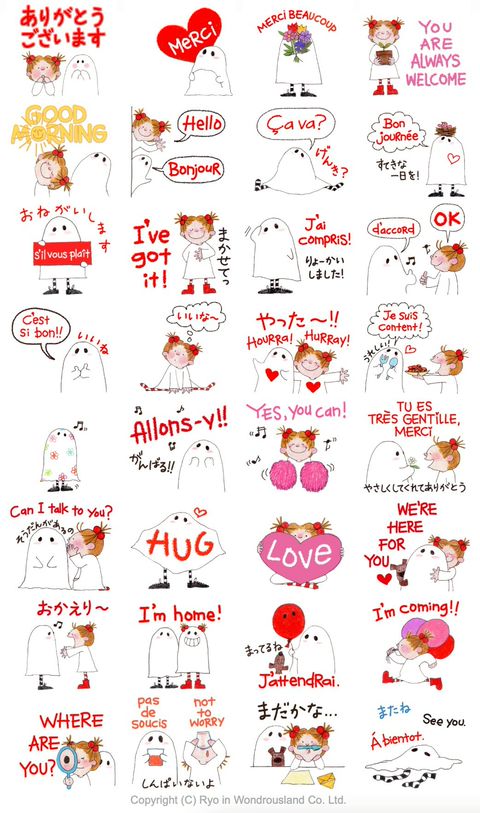 ありがとう
ございます
MERCi
MERCi BEAUCOUP
YOU
ARE
ALWAYS
WELCOME
GOOD
MORNING
Hello
Bonjour
Ça va?
げんき?
Bon
journée
すてきな
一日を!
おねがいします
s'il vous plaît
I've
got
it!
まかせてっ
J'ai
compris!
りょーかい
しました!
d'accord
OK
C'est
si bon!!
いいね
いいな~
やった~!!
HOURRA! HURRAY!
Je suis
content!
うれしい!
Allons-y!!
がんばる!!
YES, you can!
TU ES
TRÈS GENTILLE,
MERCI
やさしくしてくれてありがとう
Can I talk to you?
そうだんがあるの
HUG
LOVE
WE'RE
HERE
FOR
YOU
おかえり~
I'm home!
まってるね
J'attendrai.
I'm coming!!
WHERE
ARE
YOU?
pas
de
soucis
not
to
worry
しんぱいないよ
まだかな...
またね
See you.
Á bientot.
Copyright (C) Ryo in Wondrousland Co. Ltd.